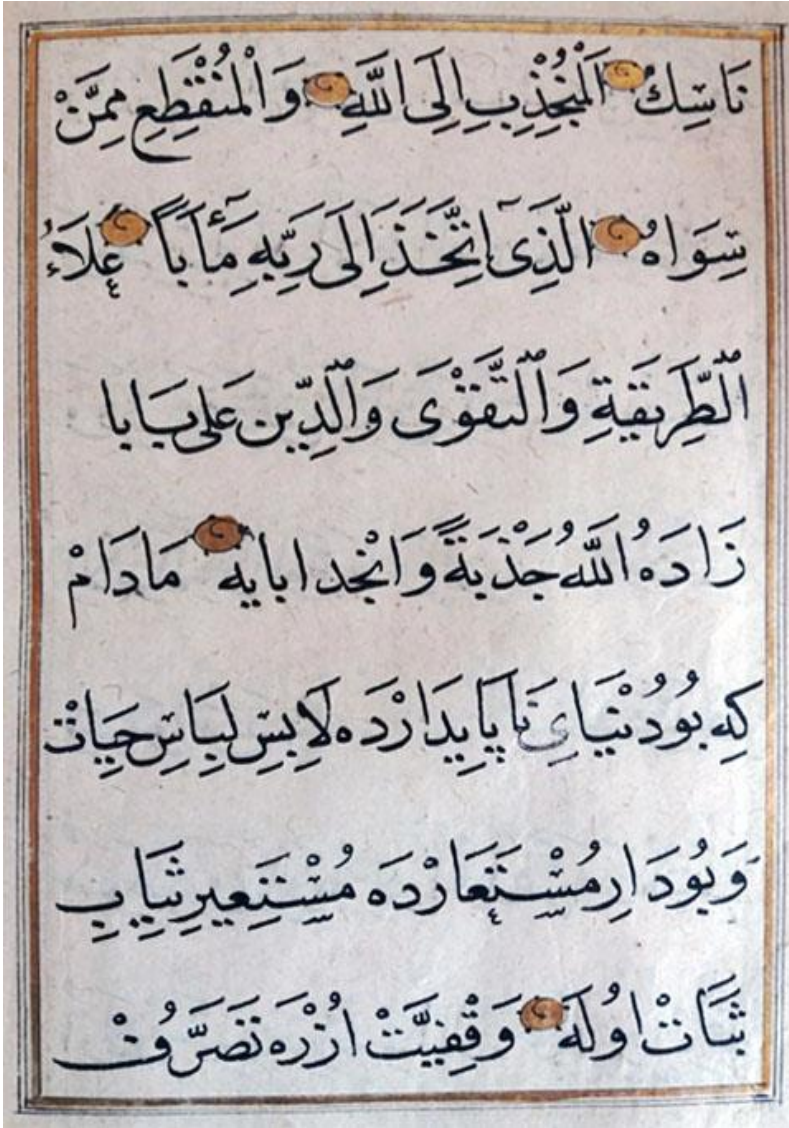 نَاسِكْ اَلْمُنْجَذِبِ اِلَى اللّٰهِ وَالْمُنْقَطِعِ مِمَّنْ
سِوَاهُ الَّذِى اتَّخَذَ اِلَى رَبِّهِ مَاٰبًا عَلَاءُ
الطَّرِيقَةِ وَالتَّقْوَى وَالدِّينِ عَلِى بَابَا
زَادَهُ اللّٰهُ جَذْبَةً وَانْجِذَابَايِهِ مَادَامْ
كِه بُو دُنْيَاىِ نَاپَايِدَارْدَه لَابِسِ لِبَاسِ حَيَاتْ
وَبُو دَارِ مُسْتَعَارْدَه مُسْتَعِيرِ ثِيَابِ
ثَبَاتْ اُولَه وَقْفِيَّتْ اُوزَرَه تَصَرُّفْ